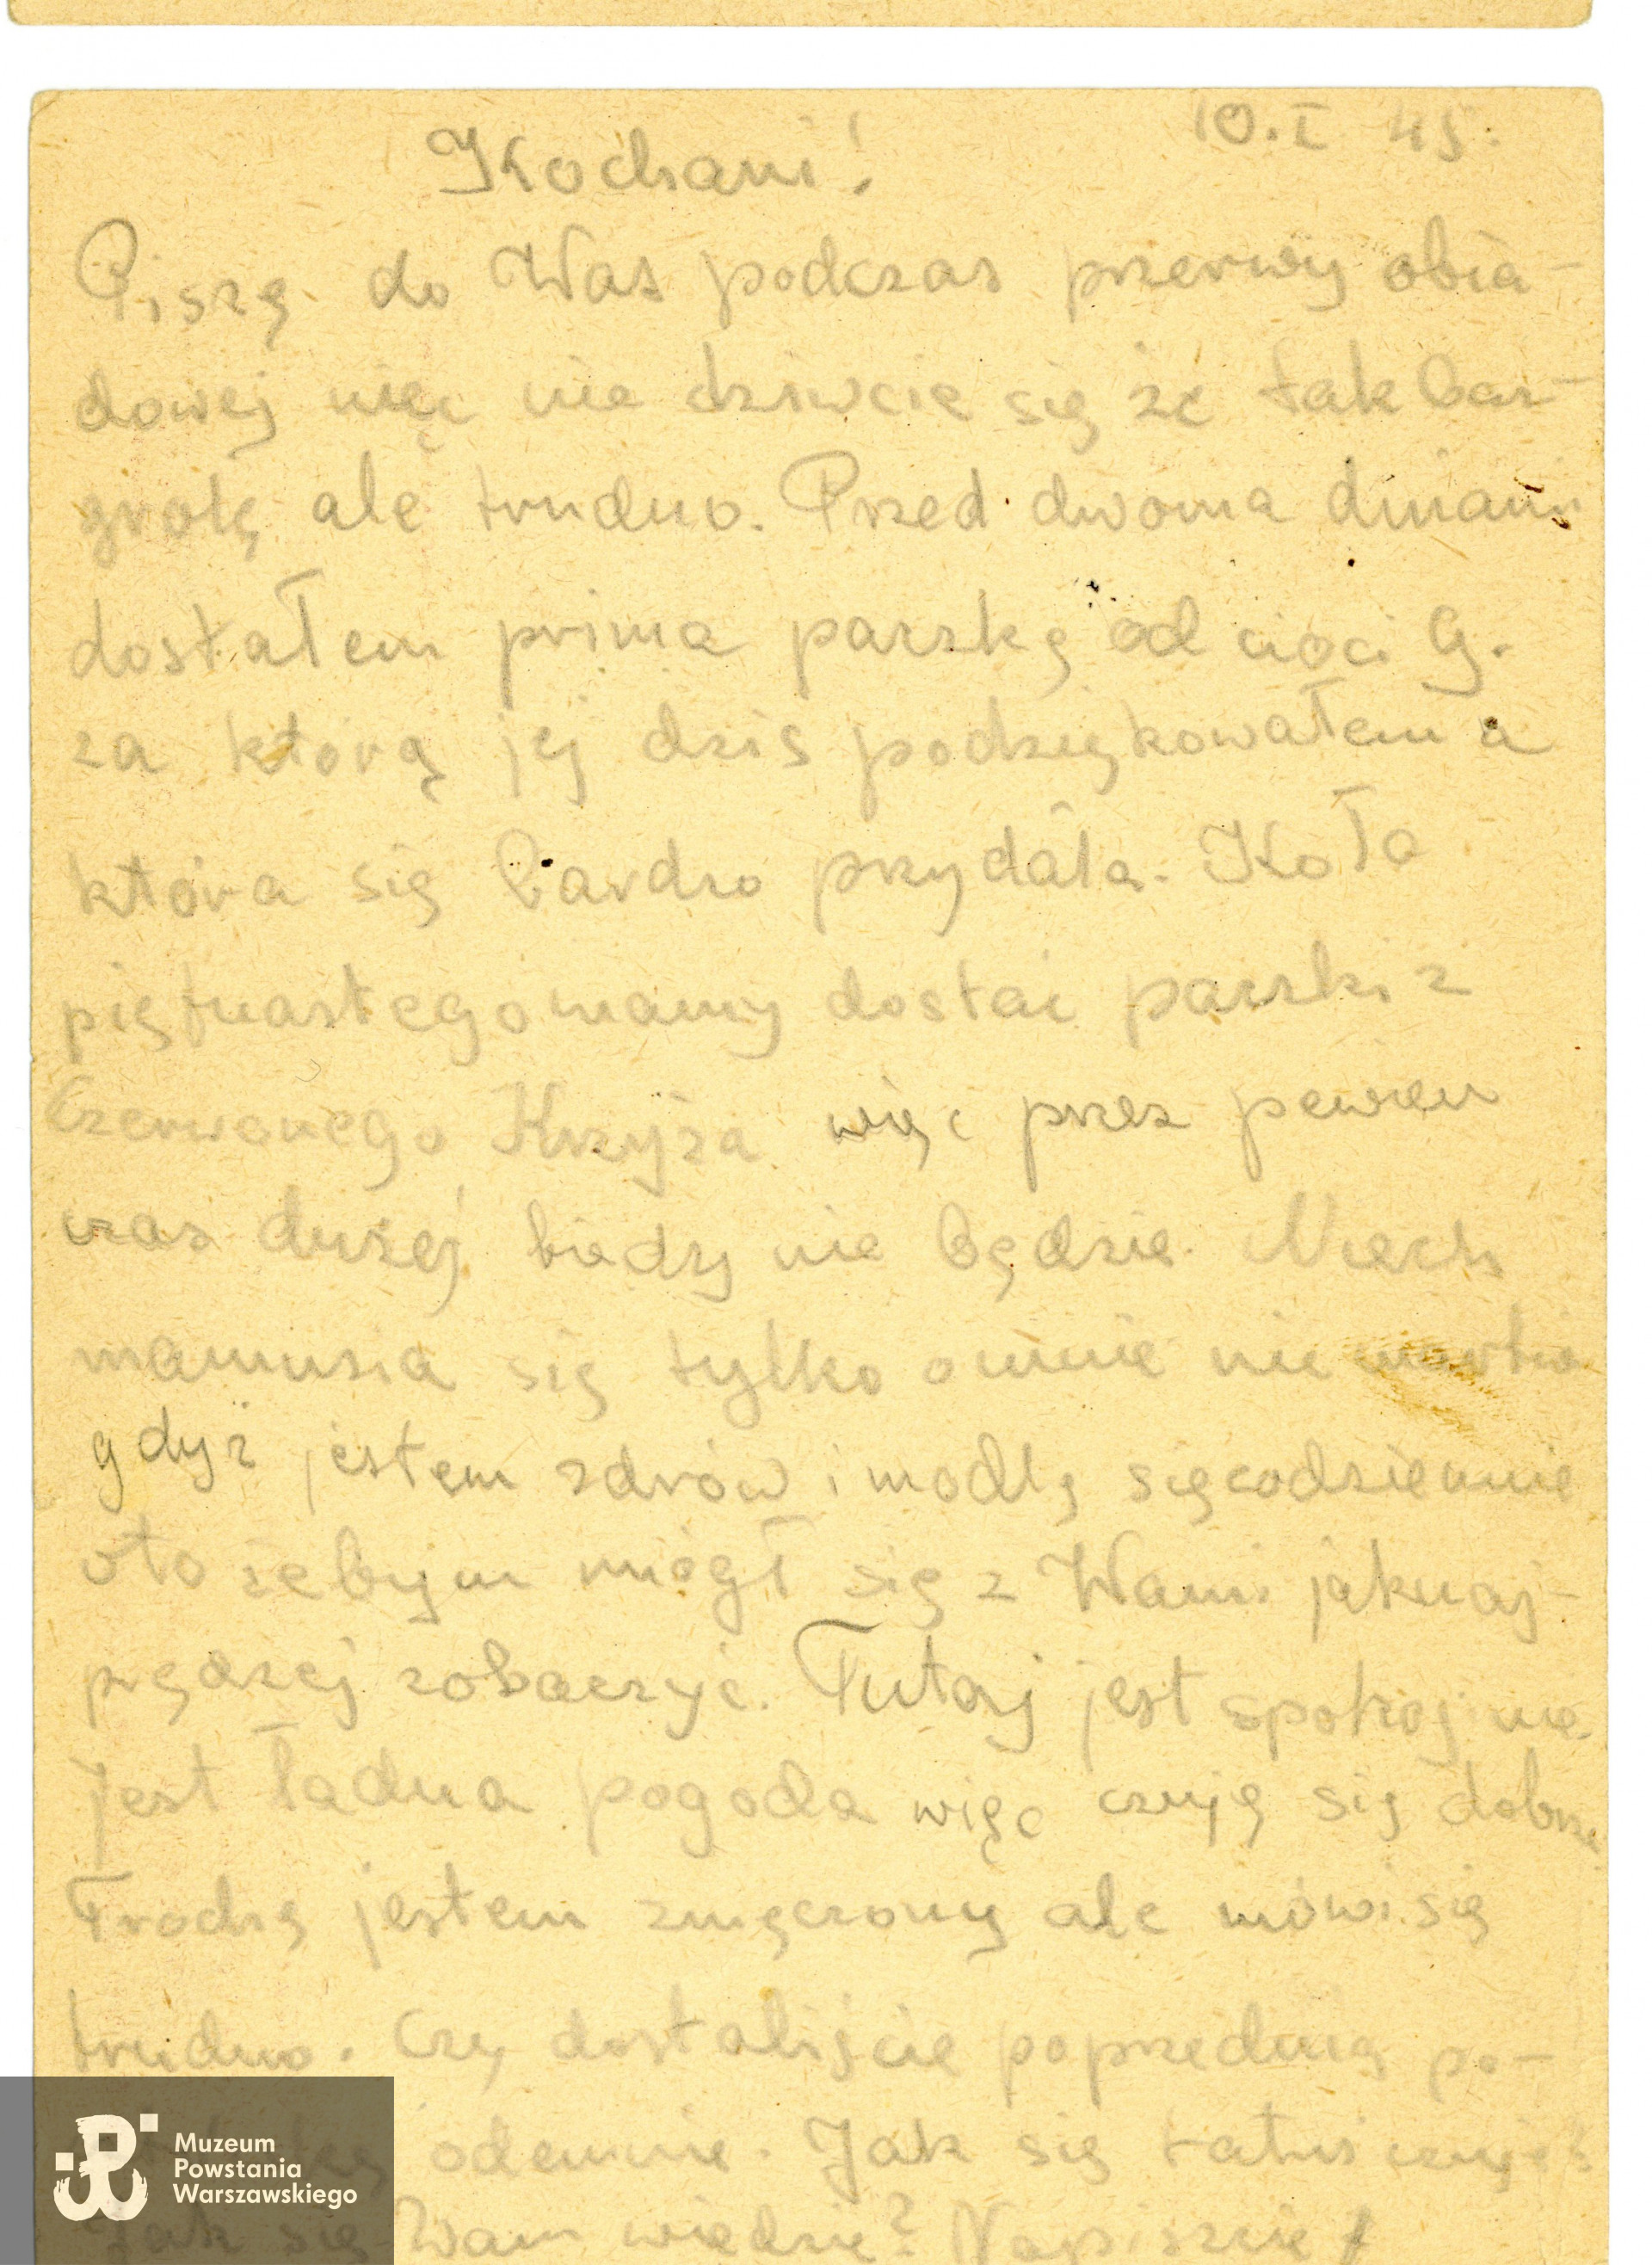 10.I 45.
Kochani!
Piszę do Was podczas przerwy obia-
dowej więc nie dziwcie się że tak baz-
grolę ale trudno. Przed dwoma dniami
dostałem prima paczkę od cioci G.
za którą jej dziś podziękowałem a
która się bardzo przydała. Koło
piętnastego mamy dostać paczki z
Czerwonego Krzyża więc przez pewien
czas dużej biedy nie będzie. Niech
mamusia się tylko o mnie nie martwi
gdyż jestem zdrów i modlę się codziennie
oto żebym mógł się z Wami jaknaj-
prędzej zobaczyć. Tutaj jest spokojnie
jest ładna pogoda więc czuję się dobrze
Trochę jestem zmęczony ale mówi się
trudno. Czy dostaliście poprzednią po-
odemnie. Jak się tatuś czuje?
Jak się Wam wiedzie? Napiszcie
Muzeum
Powstania
Warszawskiego